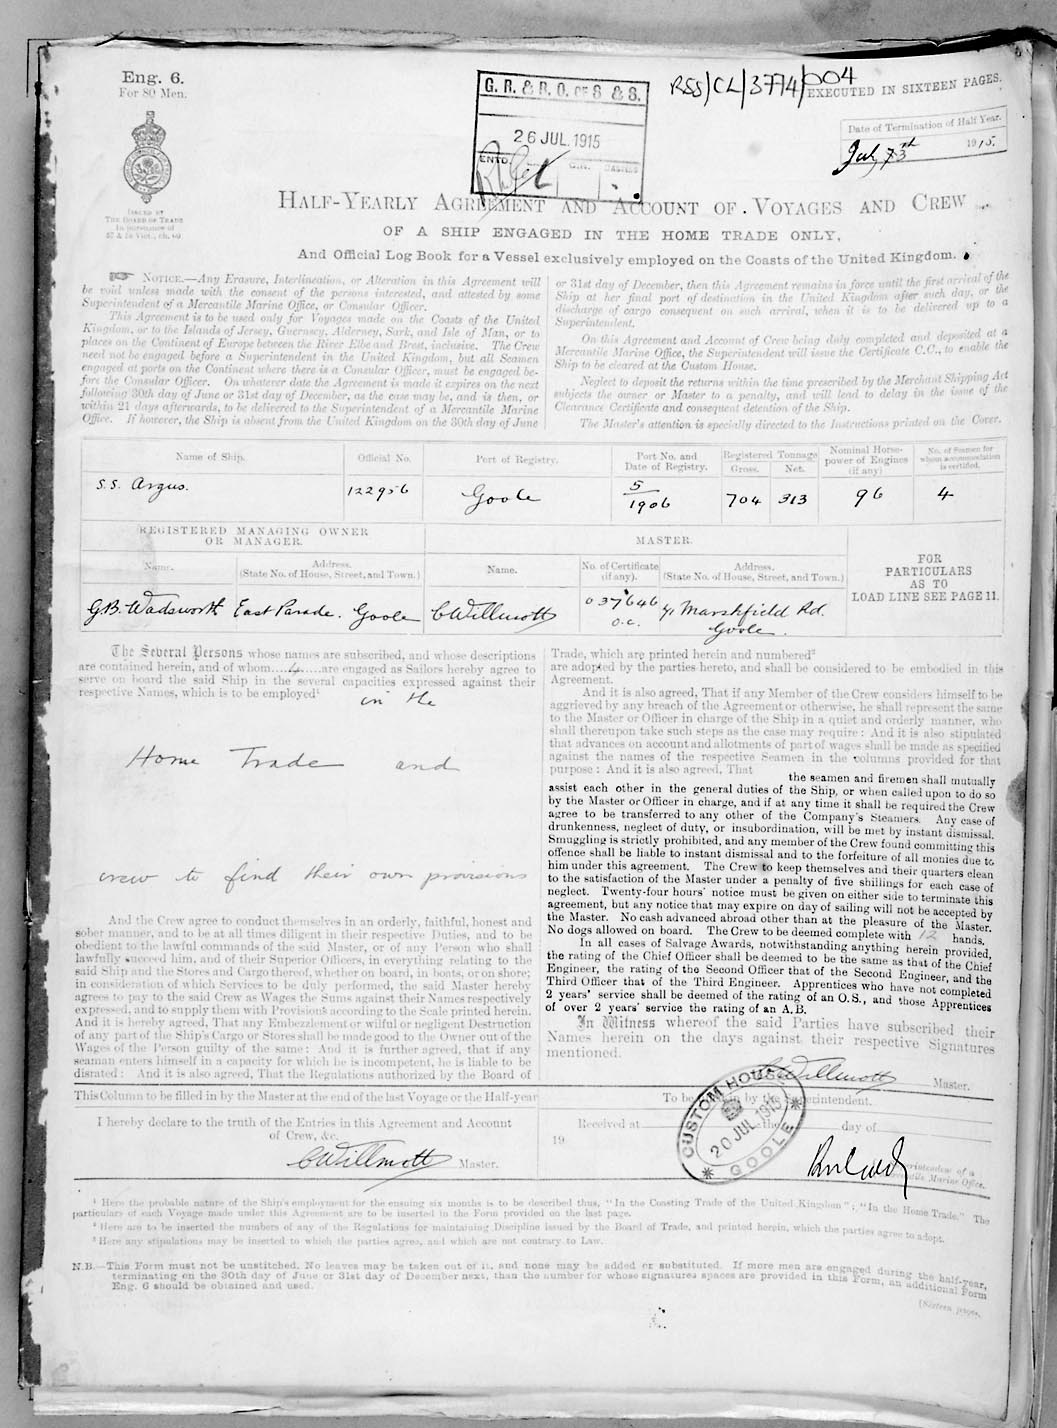 Eng. 6.
For 80 Men.
ISSUED BY
THE BOARD OF TRADE
In pursuance of
57 & 58 Vict., ch. 60
G. R. & R. O. OF S & S.
26 JUL.1915
ENTD.
RSS/CL/3774/004
EXECUTED IN SIXTEEN PAGES.
Date of Termination of Half Year.
1915.
HALF-YEARLY AGREEMENT AND ACCOUNT OF VOYAGES AND CREW
OF A SHIP ENGAGED IN THE HOME TRADE ONLY,
And Official Log Book for a Vessel exclusively employed on the Coasts of the United Kingdom.
NOTICE.—Any Erasure, Interlineation, or Alteration in this Agreement will
be void unless made with the consent of the persons interested, and attested by some
Superintendent of a Mercantile Marine Office, or Consular Officer.
This Agreement is to be used only for Voyages made on the Coasts of the United
Kingdom, or to the Islands of Jersey, Guernsey, Alderney, Sark, and Isle of Man, or to
places on the Continent of Europe between the River Elbe and Brest, inclusive. The Crew
need not be engaged before a Superintendent in the United Kingdom, but all Seamen
engaged at ports on the Continent where there is a Consular Officer, must be engaged be-
fore the Consular Officer. On whatever date the Agreement is made it expires on the next
following 30th day of June or 31st day of December, as the case may be, and is then, or
within 21 days afterwards, to be delivered to the Superintendent of a Mercantile Marine
Office. If however, the Ship is absent from the United Kingdom on the 30th day of June
or 31st day of December, then this Agreement remains in force until the first arrival of the
Ship at her final port of destination in the United Kingdom after such day, or the
discharge of cargo consequent on such arrival, when it is to be delivered up to a
Superintendent.
On this Agreement and Account of Crew being duly completed and deposited at a
Mercantile Marine Office, the Superintendent will issue the Certificate C.C., to enable the
Ship to be cleared at the Custom House.
Neglect to deposit the returns within the time prescribed by the Merchant Shipping Act
subjects the owner or Master to a penalty, and will lead to delay in the issue of the
Clearance Certificate and consequent detention of the Ship.
The Master's attention is specially directed to the Instructions printed on the Cover.
Name of Ship. Official No. Port of Registry. Port No. and Date of Registry. Registered Tonnage Gross. Net. Nominal Horse-power of Engines (if any) No. of Seamen for whom accommodation is certified.
S.S. Argus. 122956 Goole 5/1906 704 313 96 4
REGISTERED MANAGING OWNER
OR MANAGER.
MASTER.
Name. Address. (State No. of House, Street, and Town.) Name. No. of Certificate (if any). Address. (State No. of House, Street, and Town.)
FOR
PARTICULARS
AS TO
LOAD LINE SEE PAGE 11.
G.B. Wadsworth East Parade. Goole C Willmott 037646 O.C. Marshfield Rd. Goole.
The Several Persons whose names are subscribed, and whose descriptions
are contained herein, and of whom....4....are engaged as Sailors hereby agree to
serve on board the said Ship in the several capacities expressed against their
respective Names, which is to be employed¹
in the
Home Trade and
crew to find their own provisions
And the Crew agree to conduct themselves in an orderly, faithful, honest and
sober manner, and to be at all times diligent in their respective Duties, and to be
obedient to the lawful commands of the said Master, or of any Person who shall
lawfully succeed him, and of their Superior Officers, in everything relating to the
said Ship and the Stores and Cargo thereof, whether on board, in boats, or on shore;
in consideration of which Services to be duly performed, the said Master hereby
agrees to pay to the said Crew as Wages the Sums against their Names respectively
expressed, and to supply them with Provisions according to the Scale printed herein.
And it is hereby agreed, That any Embezzlement or wilful or negligent Destruction
of any part of the Ship's Cargo or Stores shall be made good to the Owner out of the
Wages of the Person guilty of the same: And it is further agreed, that if any
seaman enters himself in a capacity for which he is incompetent, he is liable to be
disrated: And it is also agreed, That the Regulations authorized by the Board of
Trade, which are printed herein and numbered²
are adopted by the parties hereto, and shall be considered to be embodied in this
Agreement.
And it is also agreed, That if any Member of the Crew considers himself to be
aggrieved by any breach of the Agreement or otherwise, he shall represent the same
to the Master or Officer in charge of the Ship in a quiet and orderly manner, who
shall thereupon take such steps as the case may require: And it is also stipulated
that advances on account and allotments of part of wages shall be made as specified
against the names of the respective Seamen in the columns provided for that
purpose: And it is also agreed, That
the seamen and firemen shall mutually
assist each other in the general duties of the Ship, or when called upon to do so
by the Master or Officer in charge, and if at any time it shall be required the Crew
agree to be transferred to any other of the Company's Steamers. Any case of
drunkenness, neglect of duty, or insubordination, will be met by instant dismissal.
Smuggling is strictly prohibited, and any member of the Crew found committing this
offence shall be liable to instant dismissal and to the forfeiture of all monies due to
him under this agreement. The Crew to keep themselves and their quarters clean
to the satisfaction of the Master under a penalty of five shillings for each case of
neglect. Twenty-four hours' notice must be given on either side to terminate this
agreement, but any notice that may expire on day of sailing will not be accepted by
the Master. No cash advanced abroad other than at the pleasure of the Master.
No dogs allowed on board. The Crew to be deemed complete with 12 hands.
In all cases of Salvage Awards, notwithstanding anything herein provided,
the rating of the Chief Officer shall be deemed to be the same as that of the Chief
Engineer, the rating of the Second Officer that of the Second Engineer, and the
Third Officer that of the Third Engineer. Apprentices who have not completed
2 years' service shall be deemed of the rating of an O.S., and those Apprentices
of over 2 years' service the rating of an A.B.
In Witness whereof the said Parties have subscribed their
Names herein on the days against their respective Signatures
mentioned.
C Willmott Master.
This Column to be filled in by the Master at the end of the last Voyage or the Half-year
I hereby declare to the truth of the Entries in this Agreement and Account
of Crew, &c.
C Willmott Master.
To be filled in by the Superintendent.
Received at the day of
19
CUSTOM HOUSE
20 JUL 1915
GOOLE
Superintendent of a
Mercantile Marine Office.
¹ Here the probable nature of the Ship's employment for the ensuing six months is to be described thus, "In the Coasting Trade of the United Kingdom"; "In the Home Trade." The
particulars of each Voyage made under this Agreement are to be inserted in the Form provided on the last page.
² Here are to be inserted the numbers of any of the Regulations for maintaining Discipline issued by the Board of Trade, and printed herein, which the parties agree to adopt.
³ Here any stipulations may be inserted to which the parties agree, and which are not contrary to Law.
N.B.—This Form must not be unstitched. No leaves may be taken out of it, and none may be added or substituted. If more men are engaged during the half-year,
terminating on the 30th day of June or 31st day of December next, than the number for whose signatures spaces are provided in this Form, an additional Form
Eng. 6 should be obtained and used.
[Sixteen pages.